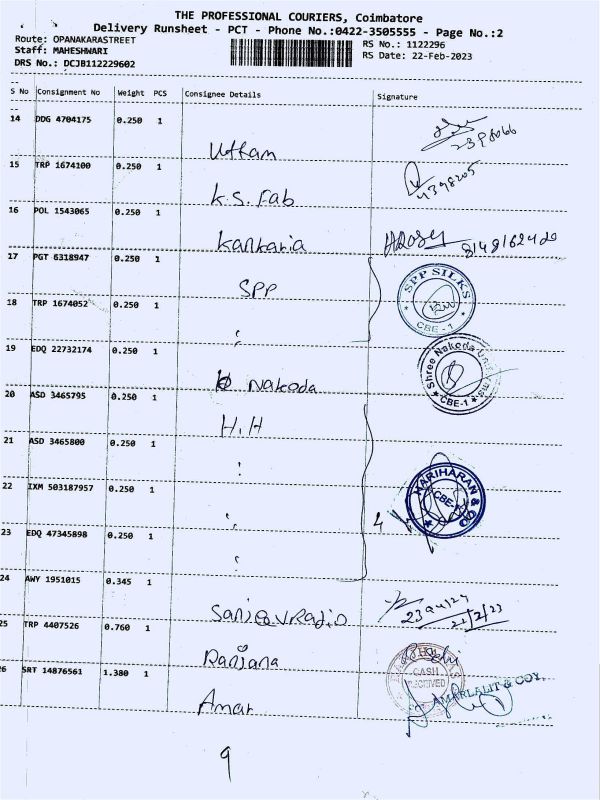 THE PROFESSIONAL COURIERS, Coimbatore
Delivery Runsheet - PCT - Phone No.:0422-3505555 - Page No.:2
Route: OPANAKARASTREET
Staff: MAHESHWARI
DRS No.: DCJB112229602
RS No.: 1122296
RS Date: 22-Feb-2023
S No Consignment No Weight PCS Consignee Details Signature
14 DDG 4704175 0.250 1
Uttam
15 TRP 1674100 0.250 1
K.S. Fab 4398205
16 POL 1543065 0.250 1
Kankaria
17 PGT 6318947 0.250 1
SPP SPP SILKS CBE - 1
18 TRP 1674052 0.250 1
19 EDQ 22732174 0.250 1
Nakoda Shree Nakoda CBE-1
20 ASD 3465795 0.250 1
H.H
21 ASD 3465800 0.250 1
22 IXM 503187957 0.250 1
4 HARIHARAN & CO CBE-1
23 EDQ 47345898 0.250 1
24 AWY 1951015 0.345 1
Sanjeev Radio 22/2/23
25 TRP 4407526 0.760 1
Ranjana CASH RECEIVED
26 SRT 14876561 1.380 1
Amar AMARLALIT & COY
9